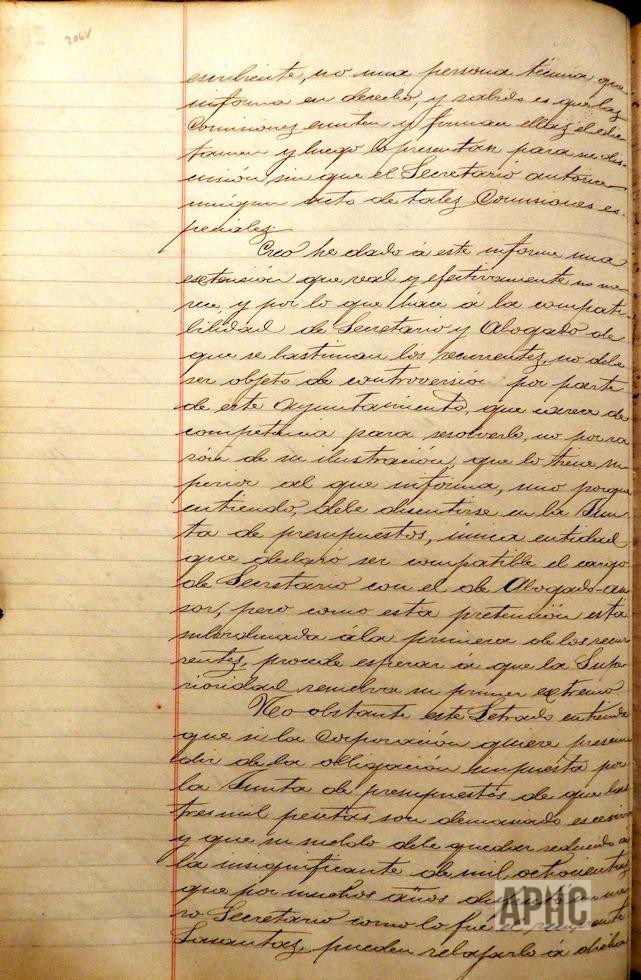 206V
escribiente, no una persona técnica que
informa en derecho, y sabido es que las
Comisiones emiten y firman ellas el dic-
tamen y luego lo presentan para su dis-
cusión sin que el Secretario autorice
ningun acto de tales Comisiones es-
peciales.
Creo he dado á este informe una
extensión que real y efectivamente no me-
rece y por lo que hace á la compati-
bilidad de Secretario y Abogado de
que se lastiman los recurrentes, no debe
ser objeto de controversia por parte
de este Ayuntamiento, que carece de
competencia para resolverlo, no por ra-
zón de su ilustración, que lo tiene su-
perior al que informa, sino porque
entiendo, debe discutirse en la Jun-
ta de presupuestos, única entidad
que declaró ser compatible el cargo
de Secretario con el de Abogado-ase
sor, pero como esta pretención está
subordinada á la primera de los recu-
rrentes, procede esperar á que la Supe-
rioridad resuelva su primer extremo.
No obstante este Letrado entiende
que si la Corporación quiere prescin-
dir de la obligación impuesta por
la Junta de presupuestos de que las
tres mil pesetas son demasiado escesivas
y que su sueldo debe quedar reducido a
la insignificante de mil ochocientas
que por muchos años disfrutó un me-
ro Secretario como lo fué el recurrente
Lasantas, pueden rebajarlo á dicha
APHC